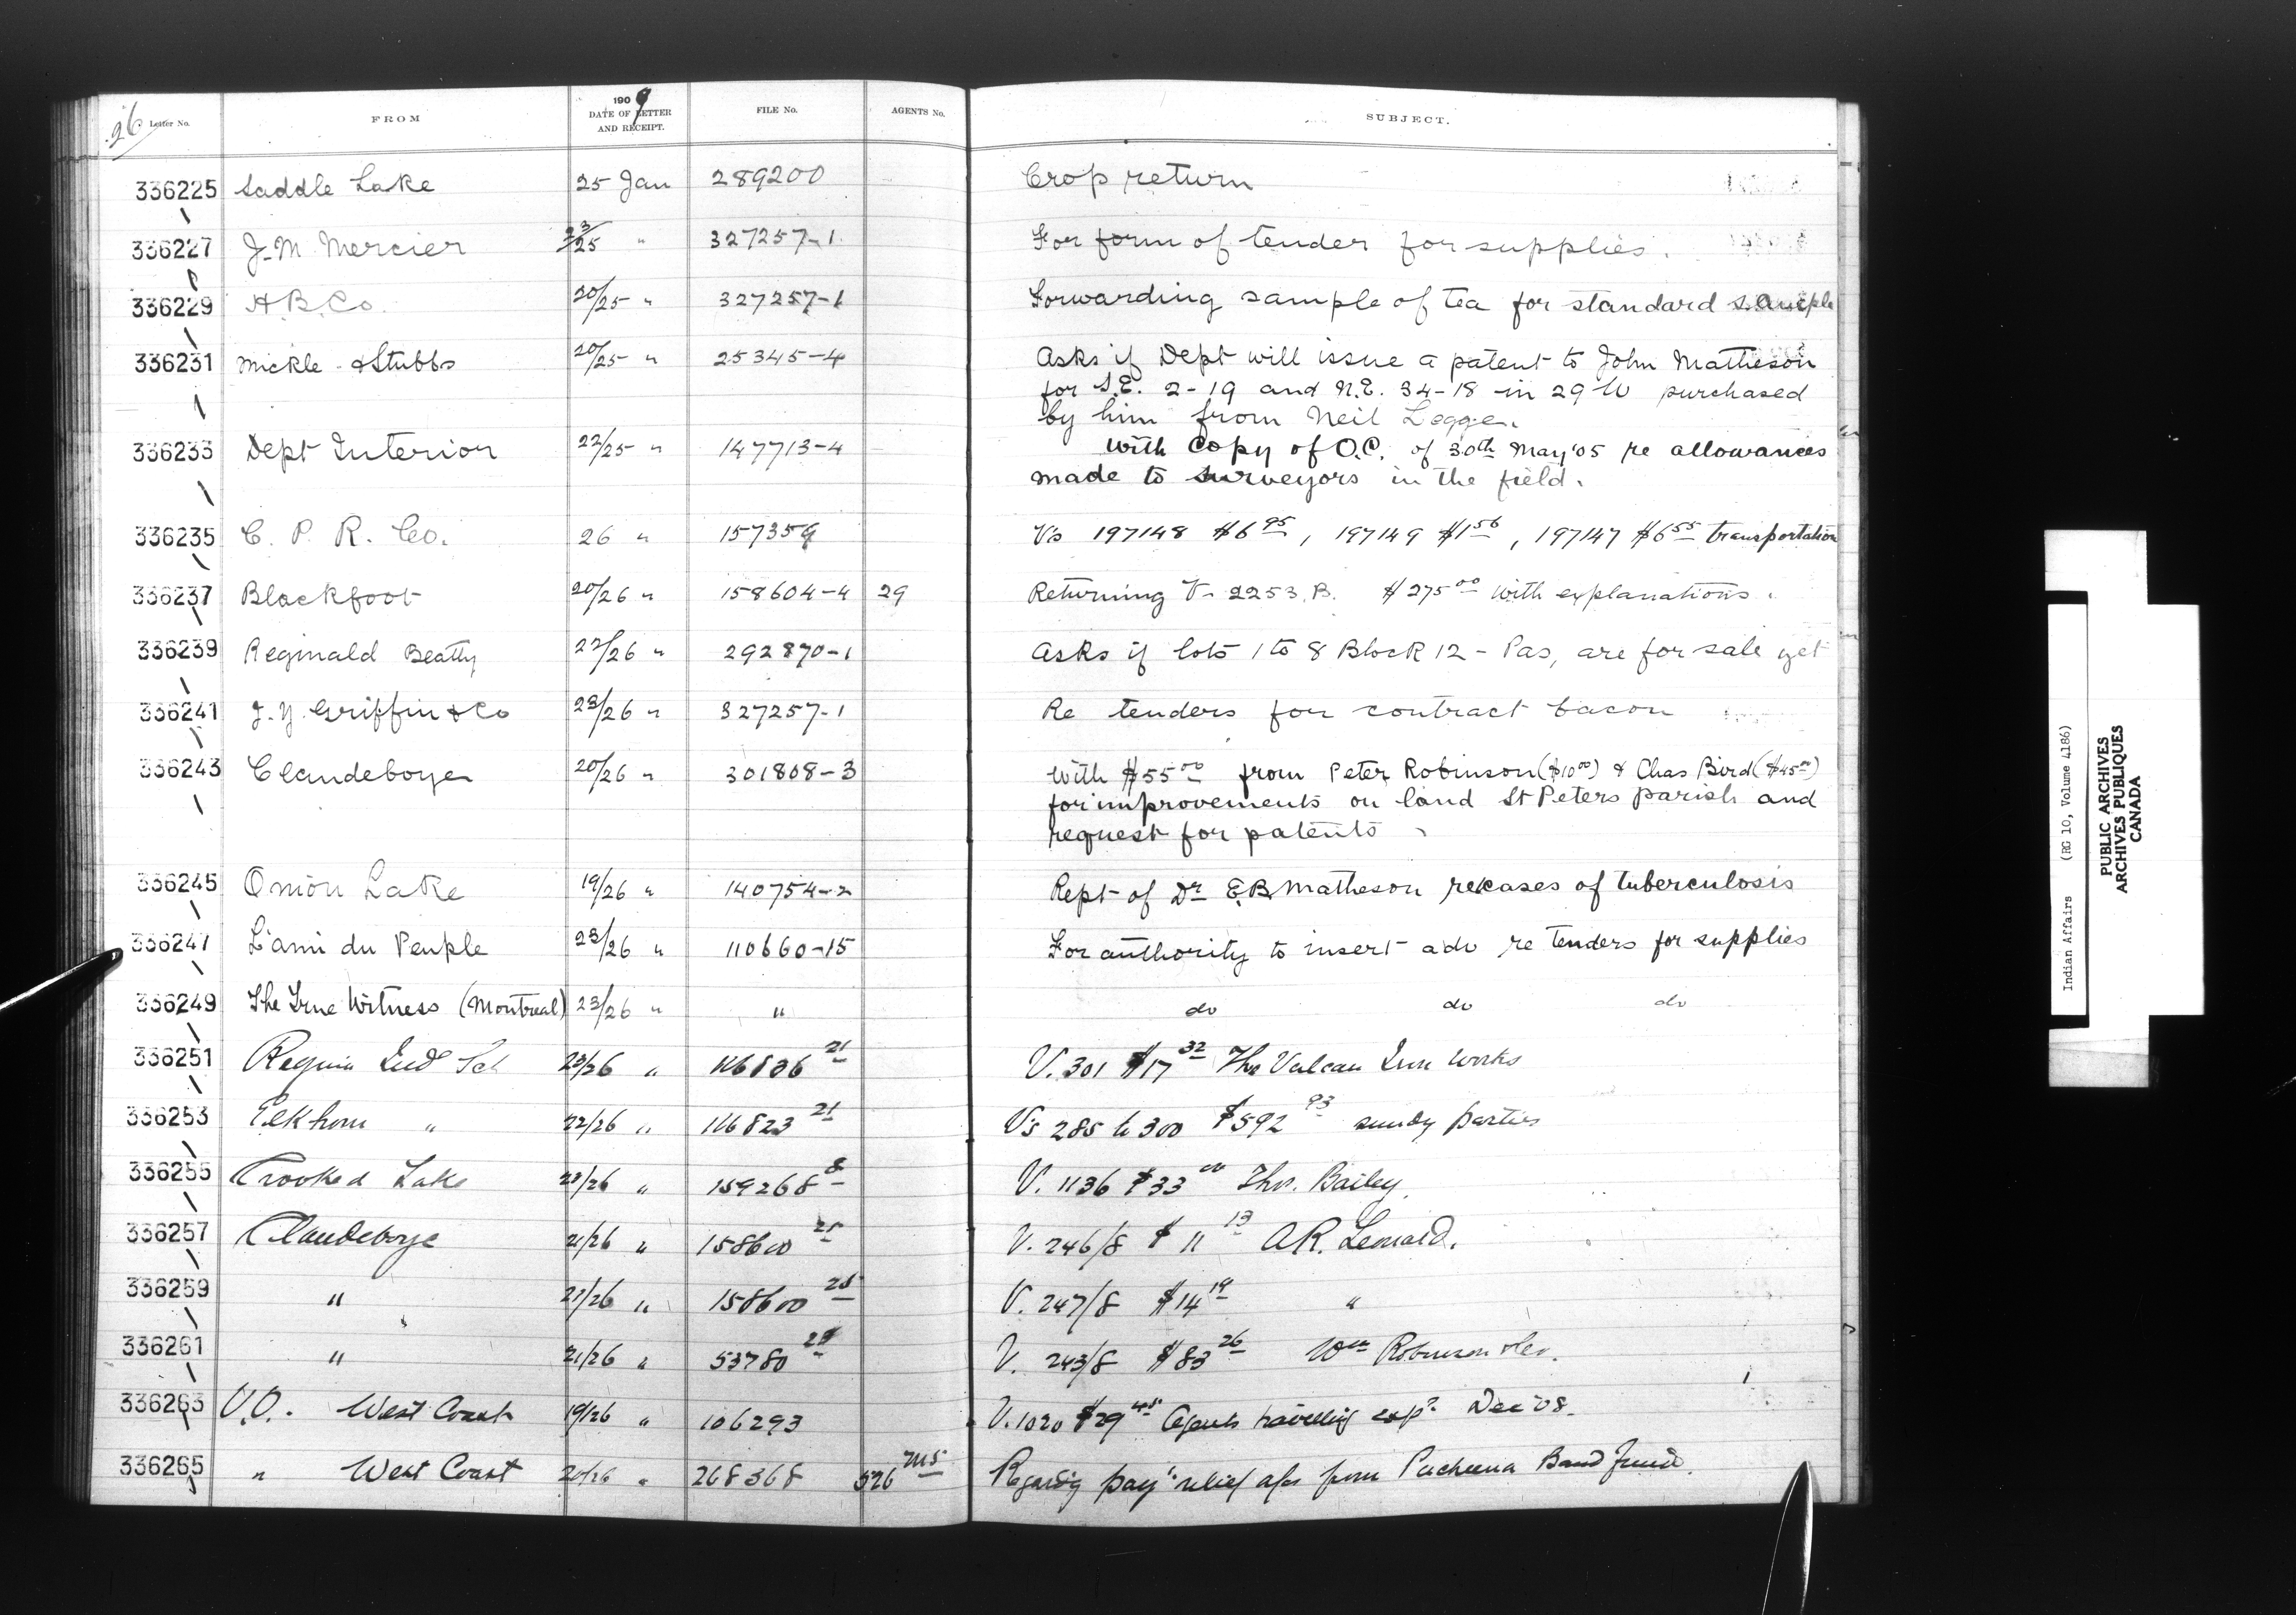 26
Letter No. FROM 1909 DATE OF LETTER AND RECEIPT. FILE No. AGENTS No. SUBJECT.
336225 Saddle Lake 25 Jan 289200 Crop return
336227 J. M. Mercier 23/25 " 327257-1 For form of tender for supplies.
336229 H.B. Co. 20/25 " 327257-1 Forwarding sample of tea for standard sample
336231 Mickle & Stubbs 20/25 " 25345-4 Asks if Dept will issue a patent to John Matheson
for S.E. 2-19 and N.E. 34-18 in 29 W purchased
by him from Neil Legge.
336233 Dept Interior 22/25 " 147713-4 With Copy of O.C. of 30th May '05 re allowances
made to surveyors in the field.
336235 C. P. R. Co. 26 " 157359 Vs 197148 $6.95, 197149 $1.56, 197147 $6.55 transportation
336237 Blackfoot 20/26 " 158604-4 29 Returning V. 2253.B. $275.00 with explanations.
336239 Reginald Beatty 22/26 " 292870-1 Asks if lots 1 to 8 Block 12 - Pas, are for sale yet
336241 J. Y. Griffin & Co 23/26 " 327257-1 Re tenders for contract bacon
336243 Clandeboye 20/26 " 301808-3 With $55.00 from Peter Robinson ($10.00) & Chas Bird ($45.00)
for improvements on land St Peters parish and
request for patents
336245 Onion Lake 19/26 " 140754-2 Rept of Dr E.B. Matheson re cases of tuberculosis
336247 L'ami du Peuple 23/26 " 110660-15 For authority to insert adv re tenders for supplies
336249 The True Witness (Montreal) 23/26 " " do do do
336251 Regina Ind Sch 23/26 " 116836 21 V. 301 $17.32 The Vulcan Iron Works
336253 Elkhorn " 22/26 " 116823 21 Vs 285 to 300 $592.93 sundry parties
336255 Crooked Lake 23/26 " 159268 8 V. 1136 $33.00 Thos. Bailey
336257 Clandeboye 21/26 " 158600 V. 246/8 $11.13 A.R. Leonard.
336259 " 21/26 " 158600 V. 247/8 $14.19 "
336261 " 21/26 " 53780 V. 243/8 $83.26 Wm Robinson & Co.
336263 V.O. West Coast 19/26 " 106293 V. 1020 $29.45 Agents travelling exps. Dec '08.
336265 " West Coast 20/26 " 268368 526 Regarding relief from Pacheena Band fund.
Indian Affairs (RG 10, Volume 4186)
PUBLIC ARCHIVES
ARCHIVES PUBLIQUES
CANADA